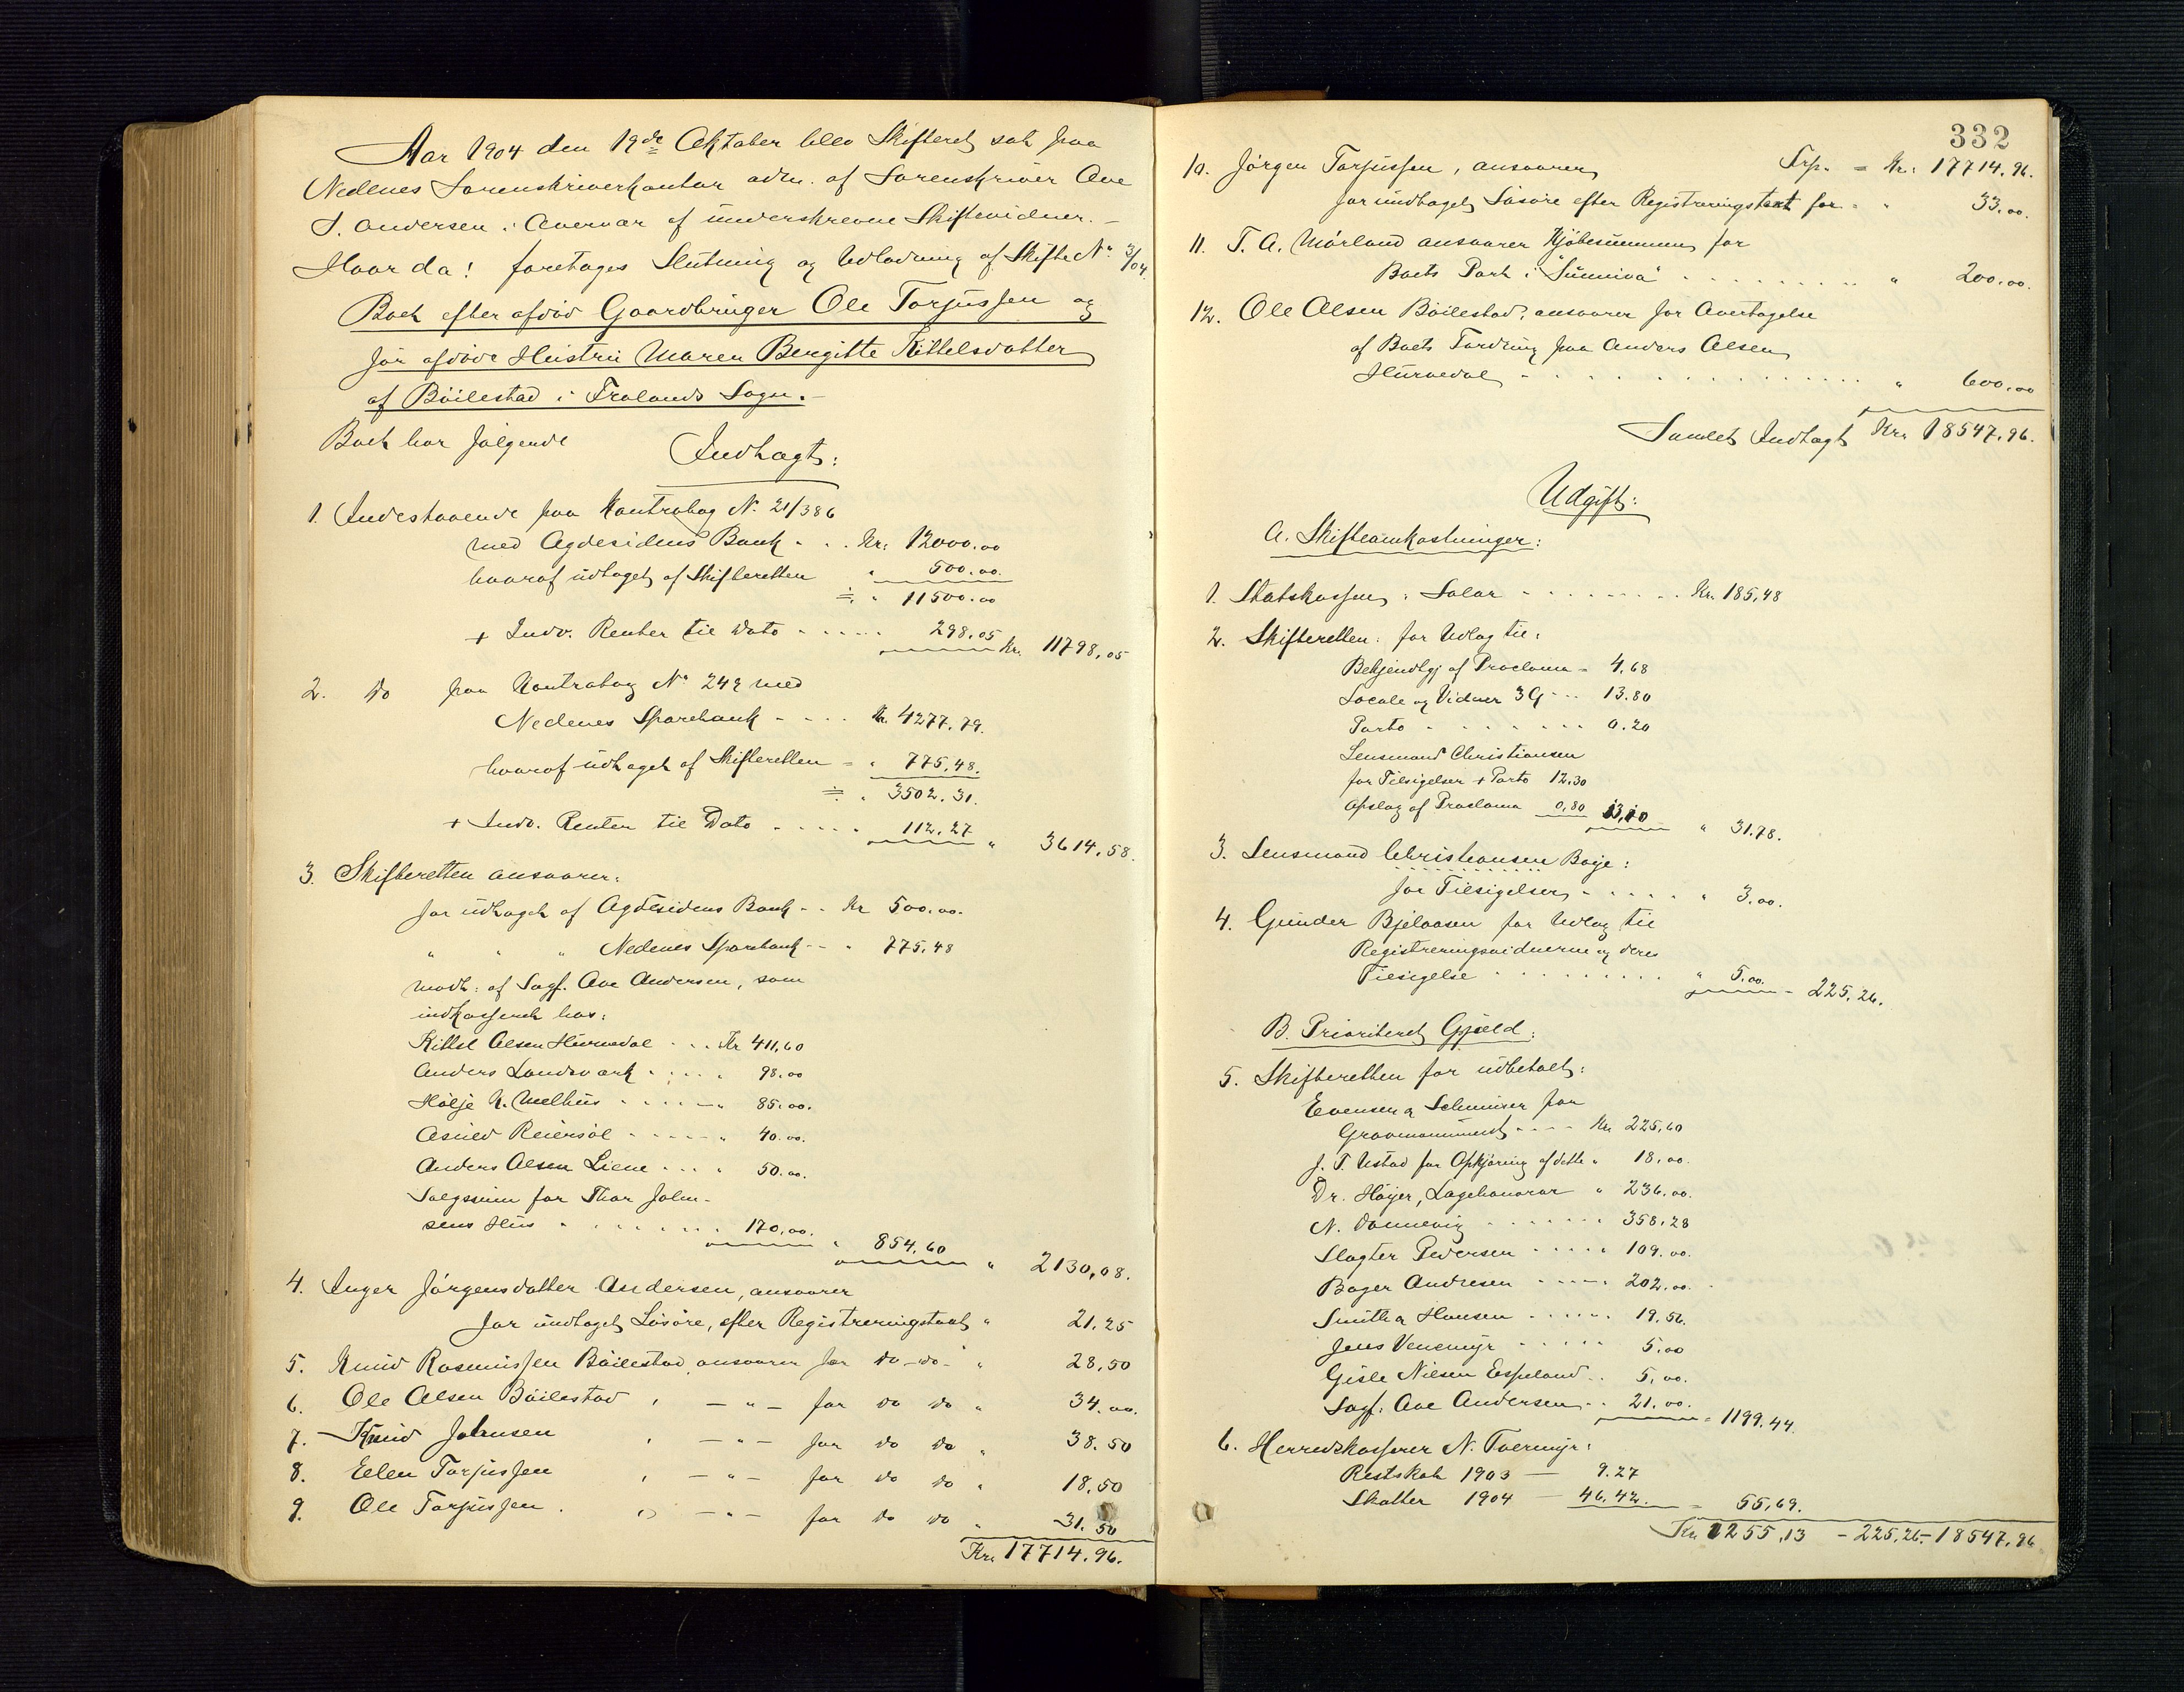 Aar 1904 den 19de Oktober blev Skifteret sat paa
Nedenes Sorenskriverkontor adm. af Sorenskriver Ove
S. Andersen i Overvær af underskrevne Skiftevidner. -
Hvor da! foretoges Slutning og Udlodning af Skifte No 3/04
Boet efter afdød Gaardbruger Ole Torjussen og
før afdøde Hustru Maren Bergitte Kittelsdatter
af Bøilestad i Frolands Sogn. -
Boet har følgende Indtægt:
1. Indestaaende paa Kontrabog No. 21/386
med Agdesidens Bank - . . Kr. 12000.00
hvoraf udtaget af Skifteretten " 500.00.
÷ " 11500.00
+ Indv. Renter til Dato - . . . . 298.05 Kr. 11798,05
2. Do paa Kontrabog No 249 med
Nedenes Sparebank - . . . Kr. 4277.79.
hvoraf udtaget af Skifteretten - " 775,48.
÷ " 3502.31.
+ Indv. Renter til Dato . . . . . 112.27 " 3614,58.
3. Skifteretten ansvarer:
for udtaget af Agdesidens Bank - . . Kr 500.00.
" " " Nedenes Sparebank - - " 775,48
modt: af Sagf. Ove Andersen, som
indkasseret hos:
Kittel Olsen Hurvedal . . . Kr 411,60
Anders Landsværk . . . . 98.00
Hølje K. Melhus . . . . . 85.00.
Asuld Reiersøl . . . . . 40.00.
Anders Olsen Liene . . . . 50.00.
Salgssum for Thor John-
sens Hus . . . . . . . 170,00. " 854,60 " 2130,08.
4. Inger Jørgensdatter Andersen, ansvarer
for undtaget Løsøre, efter Registreringstaxt " 21.25
5. Knud Rasmussen Bøilestad ansvarer for do-do- " 28,50
6. Ole Olsen Bøilestad , - " - for do do " 34.00.
7. Knud Johnsen , - " - for do do " 38.50
8. Ellen Torjussen , - " - for do do " 18,50
9. Ole Torjussen . , - " - for do do " 31.50
Kr. 17714.96.
332
Trsp. = Kr. 17714.96.
10. Jørgen Torjussen, ansvarer
for undtaget Løsøre efter Registreringstaxt for - " 33.00.
11. T. A. Mørland ansvarer Kjøbesummen for
Boets Part i "Sunniva" . . . . . . . . " 200.00.
12. Ole Olsen Bøilestad, ansvarer for Overtagelse
af Boets Fordring paa Anders Olsen
Hurvedal - . . . . . . . . . . . " 600.00
Samlet Indtægt Kr. 18547,96.
Udgift:
A. Skifteomkostninger:
1. Statskassen i Salær - . . . . . . . Kr. 185,48
2. Skifteretten: for Udlæg til:
Bekjendtgj af Proclama - 4.68
Locale og Vidner 3 G - . . 13.80
Porto . . . . . . . . 0.20
Lensmand Christiansen
for Tilsigelser + Porto 12.30
Opslag af Proclama 0,80 13,10 " 31.78.
3. Lensmand Christiansen Boije:
for Tilsigelser - . . . . " 3.00.
4. Gunder Bjelaasen for Udlæg til
Registreringsvidnerne og deres
Tilsigelse . . . . . . . . . " 5.00. - 225,26.
B. Prioriteret Gjæld:
5. Skifteretten for udbetalt:
Evensen & Schmiser for
Gravmonument - . . - Kr 225,60
J. T. Ustad for Opkjøring af dette " 18.00.
Dr. Høyer, Lægehonorar " 236.00.
N. Dannevig . . . . . . . 358.28
Slagter Pedersen . . . . . 109.00.
Bager Andresen . . . . . 202.00.
Smith & Hansen . . . . . 19.56.
Jens Venemyr . . . . . . 5.00
Gisle Nilsen Espeland . . 5,00.
Sagf. Ove Andersen . . 21.00. " 1199.44.
6. Herredskasserer N. Tvermyr:
Restskat 1903 — 9.27
Skatter 1904 — 46,42. = 55,69.
Kr. 1255,13 - 225,26 - 18547,96